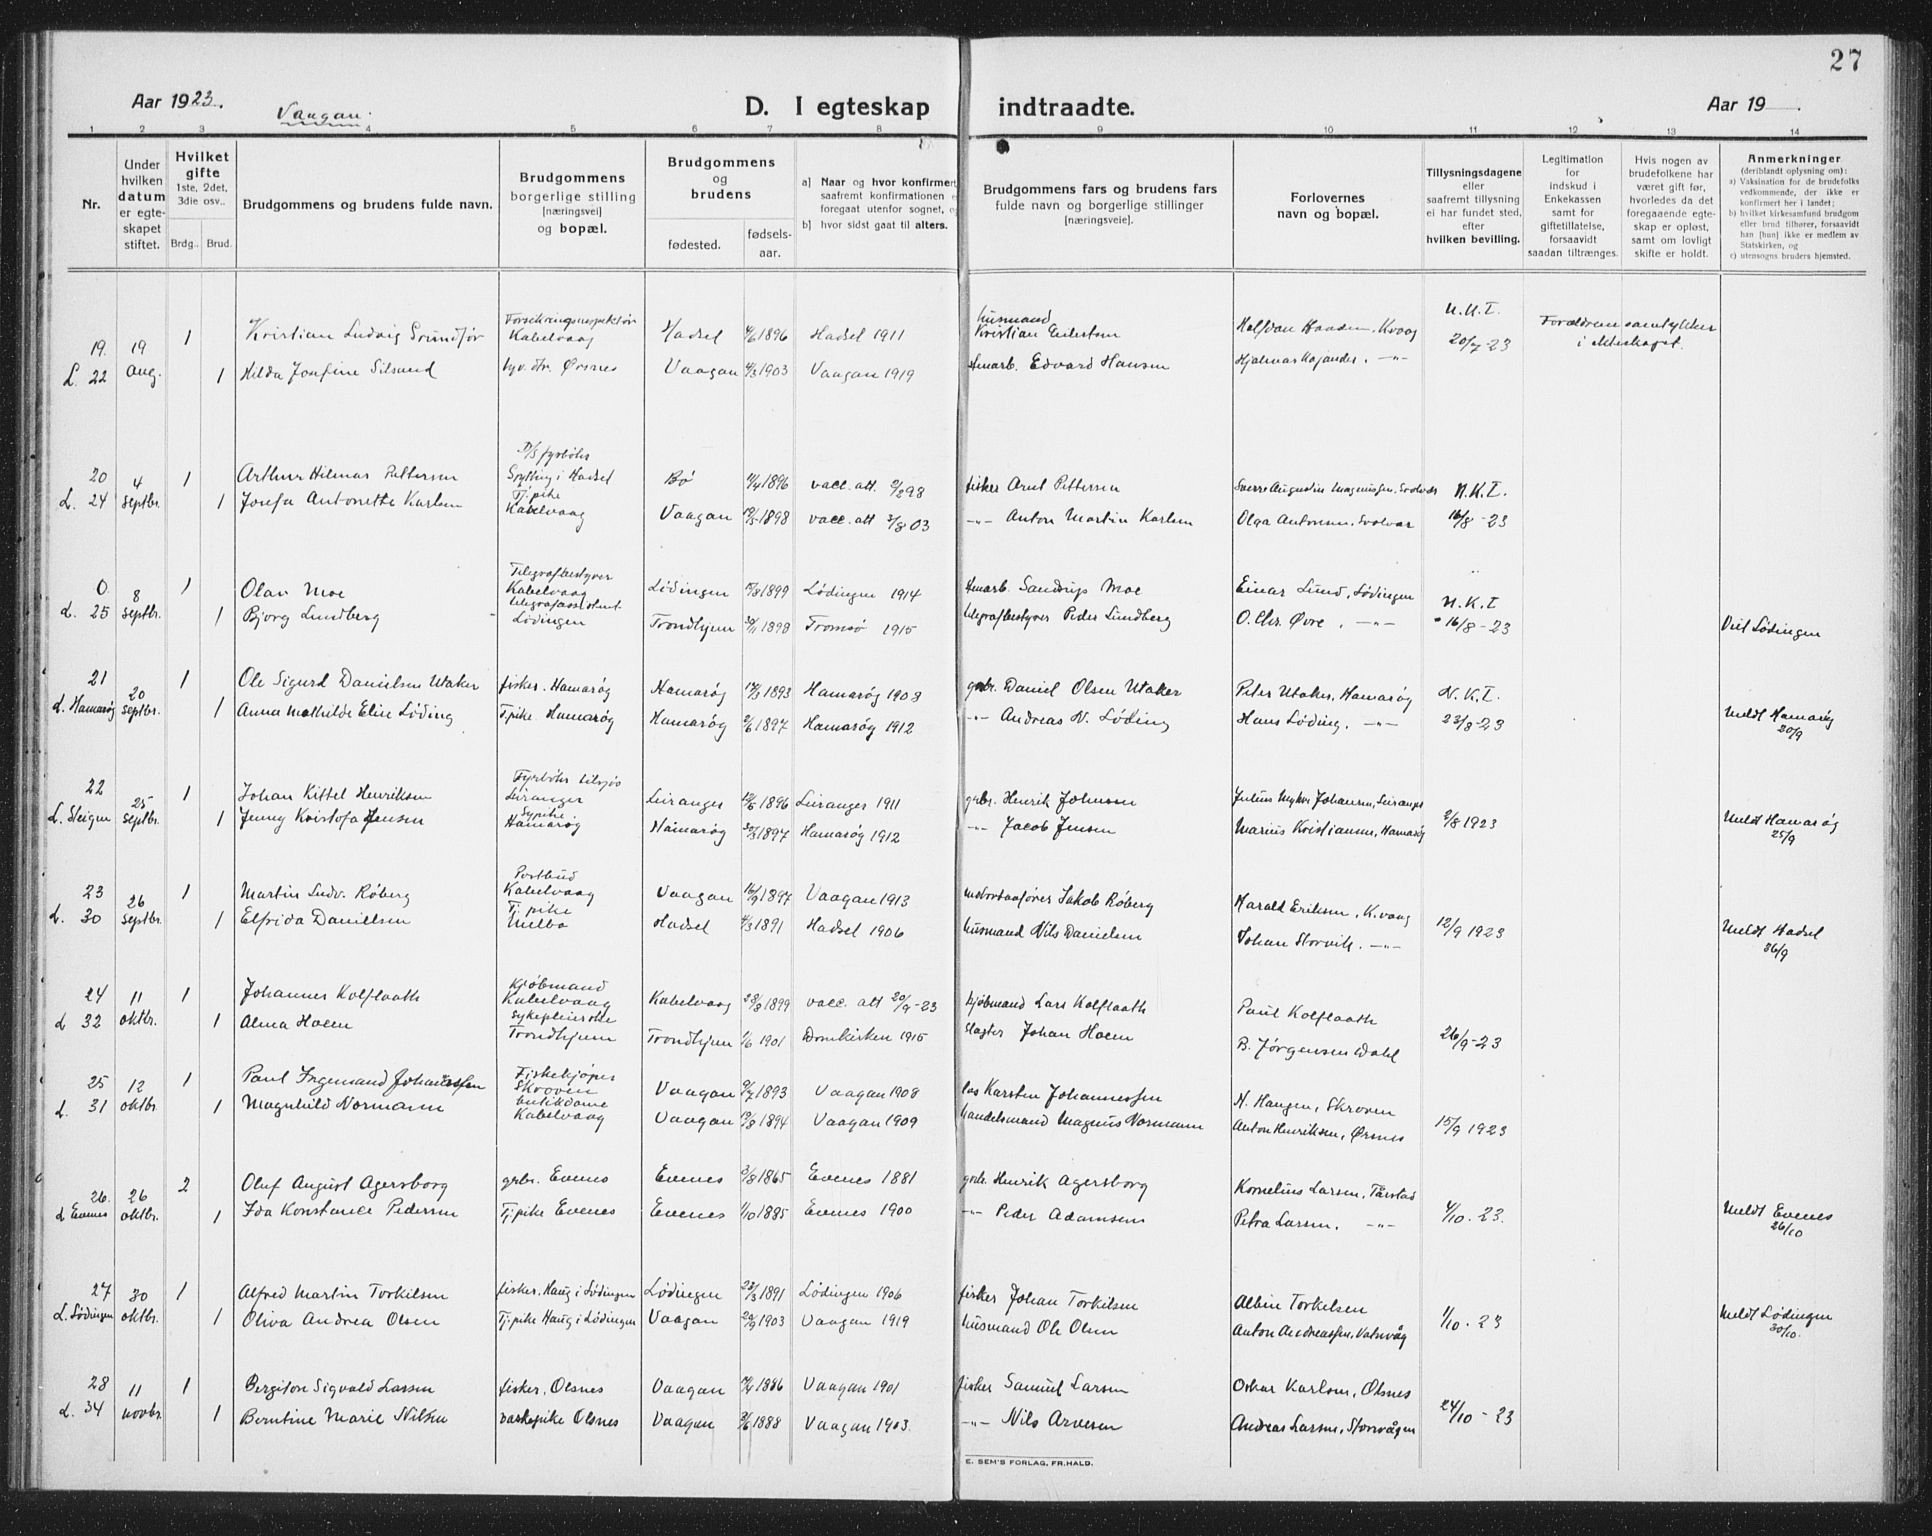 27
Aar 1923.
Vaagan.
D. I egteskap indtraadte.
Aar 19 .
1 2 3 4 5 6 7 8 9 10 11 12 13 14
Nr.
Under hvilken datum er egteskapet stiftet.
Hvilket gifte 1ste, 2det, 3die osv..
Brdg.. Brud.
Brudgommens og brudens fulde navn.
Brudgommens borgerlige stilling [næringsvei] og bopæl.
Brudgommens og brudens
fødested.
fødsels-aar.
a] Naar og hvor konfirmert
saafremt konfirmationen e
foregaat utenfor sognet, o
b] hvor sidst gaat til alters.
Brudgommens fars og brudens fars
fulde navn og borgerlige stillinger
[næringsveie].
Forlovernes
navn og bopæl.
Tillysningsdagene
eller
saafremt tillysning
ei har fundet sted,
efter
hvilken bevilling.
Legitimation
for
indskud i
Enkekassen
samt for
giftetillatelse,
forsaavidt
saadan tiltrænges.
Hvis nogen av
brudefolkene har
været gift før,
hvorledes da det
foregaaende egte-
skap er opløst,
samt om lovligt
skifte er holdt.
Anmerkninger
(deriblandt oplysning om):
a) Vaksination for de brudefolks
vedkommende, der ikke er
konfirmert her i landet;
b) hvilket kirkesamfund brudgom
eller brud tilhører, forsaavidt
han [hun] ikke er medlem av
Statskirken, og
c) utensogns bruders hjemsted.
19. 19 1 Kristian Ludvig Grundfør Kabelvaag Hadsel 4/6 1896 Hadsel 1911 husmand Kristian Eilertsen Halfdan Haaden, Kvaag N.K.I. 20/7-23 Forældrene samtykker i ekteskapet.
L. 22 Aug. 1 Hilda Josefine Silsand hv. dtr. Ørsnes Vaagan 4/3 1903 Vaagan 1919 Edvard Hansen Hjalmar Kajander, -"-
20 4 1 Arthur Hilmar Pettersen D/S fyrbøter i Hadsel Bø 4/4 1896 vacc. att. 2/2 98 fisker Arnt Pettersen Sverre Augustin Magnussen, Svolvær N.K.I.
L. 24 septbr. 1 Josefa Antonette Karlsen Tj. pike Kabelvaag Vaagan 19/5 1898 vacc. att 3/8 03 -"- Anton Martin Karlsen Olga Antonsen, Svolvær 16/8-23
0 8 1 Olav Moe Telegrafbestyrer Kabelvaag Lødingen 17/8 1899 Lødingen 1914 Sandrup Moe Einar Lund, Lødingen N.K.I
L. 25 septbr. 1 Bjorg Lundberg telegrafassistent Lødingen Trondhjem 30/11 1898 Tromsø 1915 telegrafbestyrer Peder Lundberg O. Chr. Øvre, -"- 16/8-23 Viet Lødingen
21 20 1 Ole Sigurd Danielsen Utaker fisker. Hamarøg Hamarøg 17/3 1893 Hamarøg 1908 gbr. Daniel Olsen Utaker Peter Utaker, Hamarøg N.K.I.
L. Hamarøg septbr. 1 Anna Mathilde Eline Løding Tj.pike. Hamarøg Hamarøg 2/6 1897 Hamarøg 1912 -"- Andreas N. Løding Hans Løding, -"- 23/8-23 Meldt Hamarøg 20/9
22 25 1 Johan Kittel Henriksen Fyrbøter tilsjøs Leiranger Leiranger 12/6 1896 Leiranger 1911 gbr. Henrik Johnsen Julius Myker Johansen, Leiranger
L. Steigen septbr. 1 Jenny Kristofa Jensen Sypike Hamarøg Hamarøg 30/3 1897 Hamarøg 1912 -"- Jacob Jensen Marius Kristiansen, Hamarøg 2/8 1923 Meldt Hamarøg 25/9
23 26 1 Martin Ludv. Røberg Postbud Kabelvaag Vaagan 16/9 1897 Vaagan 1913 Jakob Røberg Harald Eriksen, K.vaag
L. 30 septbr. 1 Elfrida Danielsen Tj. pike Melbo Hadsel 4/3 1891 Hadsel 1906 husmand Nils Danielsen Johan Storvik. -"- 12/9 1923 Meldt Hadsel 26/9
24 11 1 Johannes Kolflaath Kjøbmand Kabelvaag Kabelvaag 28/8 1899 vacc. att 20/9-23 kjøbmand Lars Kolflaath Paul Kolflaath
L 32 oktbr. 1 Alma Hoem sykepleierske Trondhjem Trondhjem 1/6 1901 Domkirken 1915 Slagter Johan Hoem B. Jørgensen Dahl 26/9-23
25 12 1 Paul Ingemand Johannessen Fiskekjøper Skroven Vaagan 9/7 1893 Vaagan 1908 los Karsten Johannessen N. Haugen, Skroven
L. 31 oktbr. 1 Magnhild Normann butikdame Kabelvaag Vaagan 19/8 1894 Vaagan 1909 handelsmand Magnus Normann Anton Henriksen, Ørsnes 15/9 1923
26. 26 2 Oluf August Agersborg gbr. Evenes Evenes 3/8 1865 Evenes 1881 gbr. Henrik Agersborg Kornelius Larsen, Tårstad
L Evenes oktbr. 1 Ida Konstance Pedersen Tj. pike Evenes Evenes 1/10 1885 Evenes 1900 -"- Peder Adamsen Petra Larsen. -"- 4/10.23. Meldt Evenes 26/10
27 30 1 Alfred Martin Torkilsen fisker, Haug i Lødingen Lødingen 23/3 1891 Lødingen 1906 fisker Johan Torkilsen Albin Torkelsen
L. Lødingen oktbr. 1 Oliva Andrea Olsen Tj. pike Haug i Lødingen Vaagan 20/9 1903 Vaagan 1919 husmand Ole Olsen Anton Andreassen, Vatnvåg 1/10.23 Meldt Lødingen 30/10.
28 11 1 Bergiton Sigvald Larsen fisker, Olsnes Vaagan 14/4 1886 Vaagan 1901 fisker Samuel Larsen Oskar Karlsen, Olsnes
L. 34 novbr. 1 Berntine Marie Nilsen vaskepike Olsnes Vaagan 3/6 1888 Vaagan 1903. -"- Nils Arvesen Andreas Larsen, Storvågen 24/10-23
E. SEM'S FORLAG, FR.HALD.